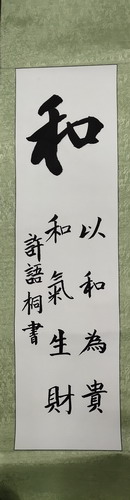 和
以和為貴
和氣生財
許語桐書